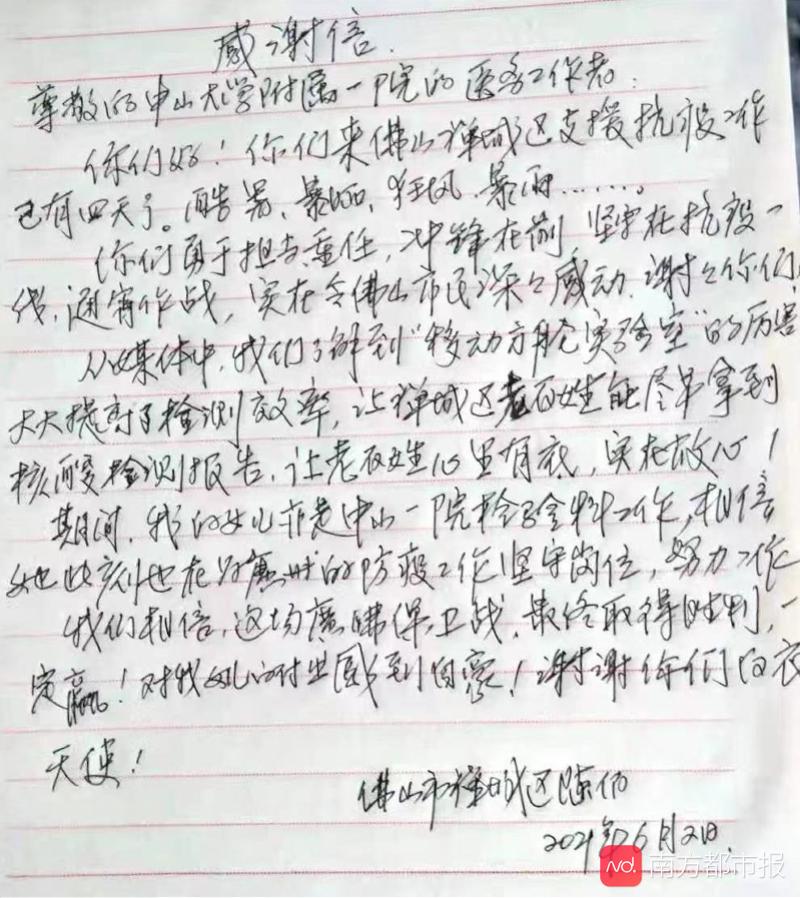 感谢信.
尊敬的中山大学附属一院的医务工作者:
你们好!你们来佛山禅城区支援抗疫工作
已有四天了。酷暑、暴晒、狂风、暴雨……。
你们勇于担当重任,冲锋在前,坚守在抗疫一
线,通宵作战,实在令佛山市民深々感动.谢々你们!
从媒体中,我们了解到“移动方舱实验室”的厉害
大大提高了检测效率,让禅城区老百姓能尽早拿到
核酸检测报告,让老百姓心里有底,实在放心!
期间,我的女儿亦是中山一院检验科工作,相信
她此刻也在为广州的防疫工作坚守岗位,努力工作
我们相信,这场广佛保卫战,最终取得胜利,一
定赢!对我女儿的付出感到自豪!谢谢你们白衣
天使!
佛山市禅城区陈伯
2021年6月2日.
南方都市报